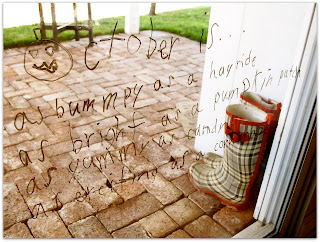 October is...
as bummpy as a hayride
as bright as a pumpkin patch
as yummy as candy
as as corn